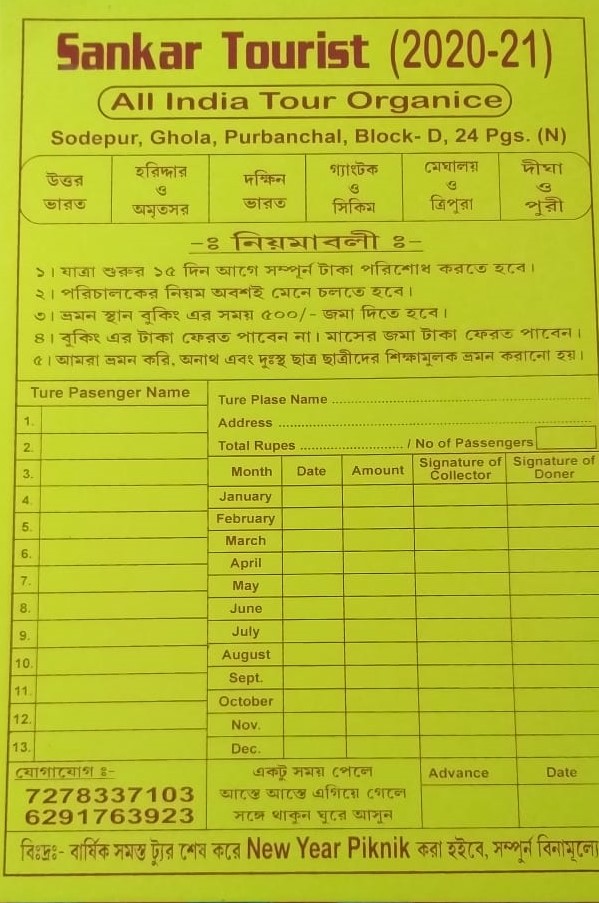 Sankar Tourist (2020-21)
All India Tour Organice
Sodepur, Ghola, Purbanchal, Block- D, 24 Pgs. (N)
উত্তর ভারত
হরিদ্দার ও অমৃতসর
দক্ষিন ভারত
গ্যাংটক ও সিকিম
মেঘালয় ও ত্রিপুরা
দীঘা ও পুরী
-ঃ নিয়মাবলী ঃ-
১। যাত্রা শুরুর ১৫ দিন আগে সম্পূর্ন টাকা পরিশোধ করতে হবে।
২। পরিচালকের নিয়ম অবশই মেনে চলতে হবে।
৩। ভ্রমন স্থান বুকিং এর সময় ৫০০/- জমা দিতে হবে।
৪। বুকিং এর টাকা ফেরত পাবেন না। মাসের জমা টাকা ফেরত পাবেন।
৫। আমরা ভ্রমন করি, অনাথ এবং দুঃস্থ ছাত্র ছাত্রীদের শিক্ষামুলক ভ্রমন করানো হয়।
Ture Pasenger Name
1.
2.
3.
4.
5.
6.
7.
8.
9.
10.
11.
12.
13.
Ture Plase Name
Address
Total Rupes / No of Passengers
Month Date Amount Signature of Collector Signature of Doner
January
February
March
April
May
June
July
August
Sept.
October
Nov.
Dec.
যোগাযোগ ঃ-
7278337103
6291763923
একটু সময় পেলে
আস্তে আস্তে এগিয়ে গেলে
সঙ্গে থাকুন ঘুরে আসুন
Advance Date
বিঃদ্রঃ- বার্ষিক সমস্ত ট্যুর শেষ করে New Year Piknik করা হইবে, সম্পুর্ন বিনামূল্যে